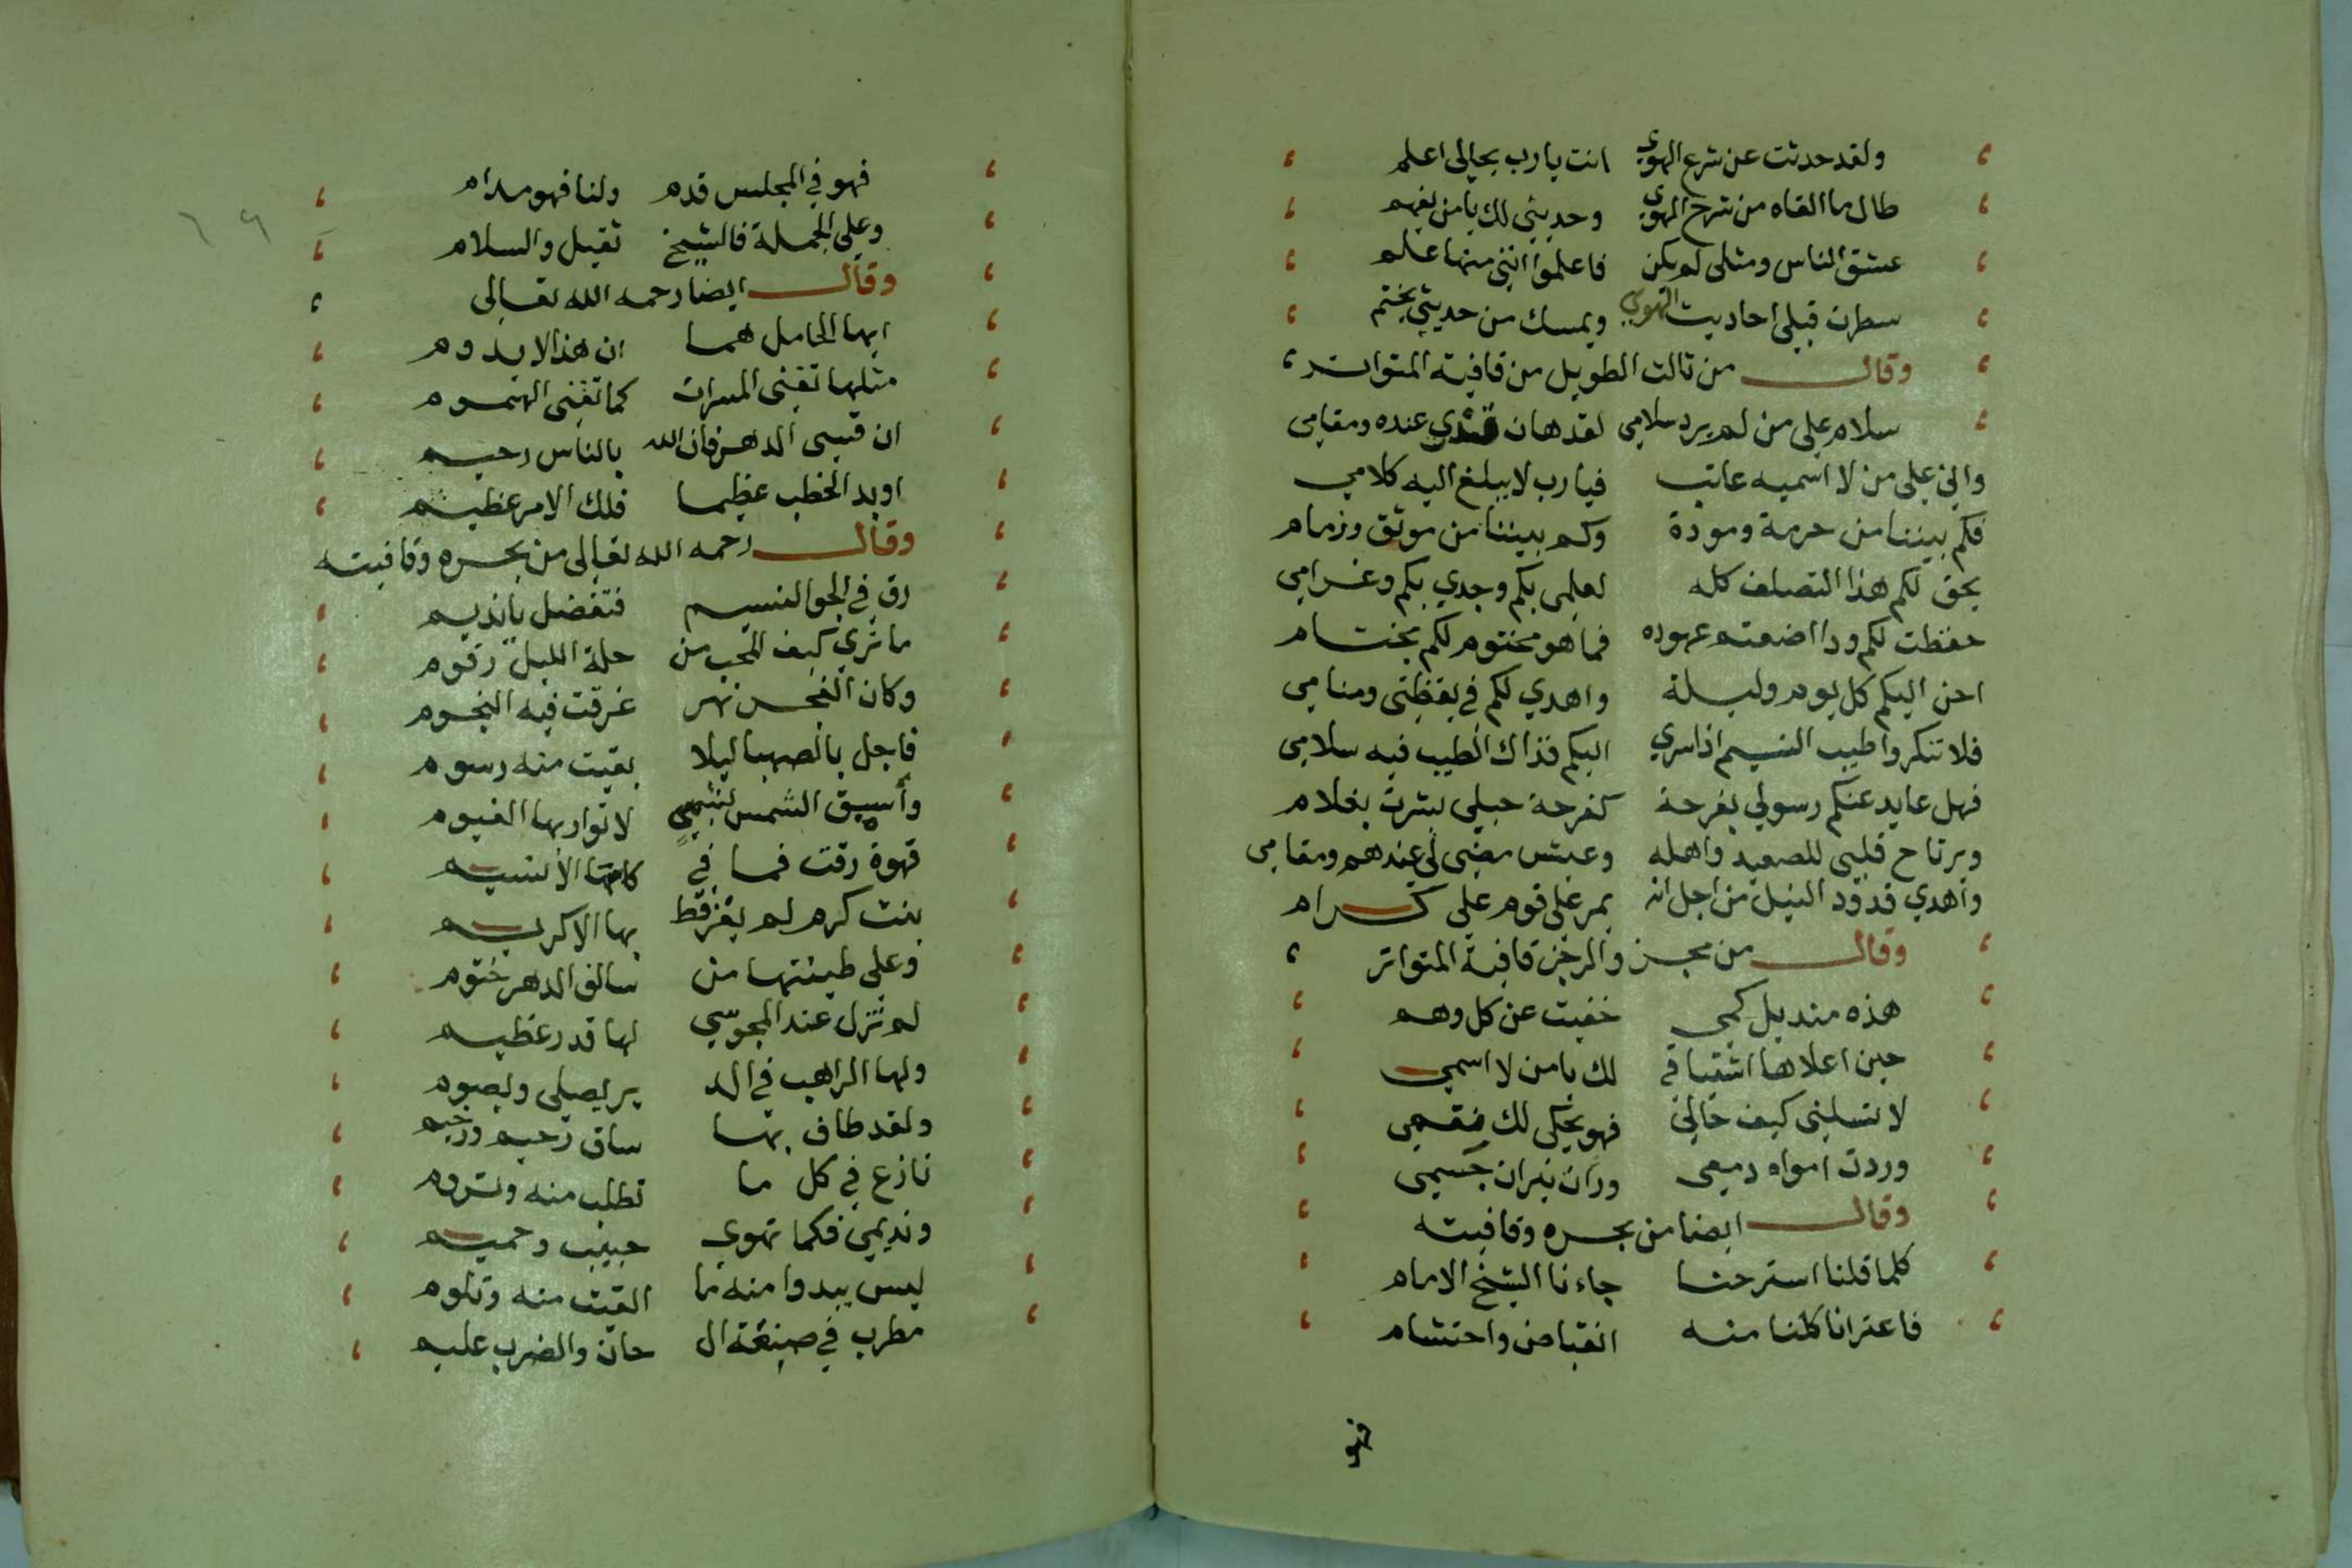 ولقد حدثت عن شرع الهوي انت يا رب بحالى اعلم
طال ما القاه من شرح الهوي وحديثي لك يا من يفهم
عشق الناس ومثلى لم يكن فاعلموا انني منها علم
سطرت قبلي احاديث الهوي وبمسك من حديثي يختم
وقال من ثالث الطويل من قافية المتواتر
سلام على من لم يرد سلامي لقد هان قدري عنده ومقامي
واني على من لا اسميه عاتب فيا رب لا يبلغ اليه كلامي
فكم بيننا من حرمة ومودة وكم بيننا من موثق وزمام
بحق لكم هذا التصلف كله لعلمى بكم وجدي بكم وغرامي
حفظت لكم ودا اضعتم عهوده فما هو مختوم لكم بختام
احن اليكم كل يوم وليلة واهدي لكم في يقظتى ومنامي
فلا تنكروا طيب النسيم اذا سري اليكم فذاك الطيب فيه سلامى
فهل عايد عنكم رسولي بفرحة كفرحة حبلي بشرت بغلام
ويرتاح قلبي للصعيد واهله وعيش مضى لي عندهم ومقامي
واهدي قدود النيل من اجل انه يمر على قوم علي كرام
وقال من مجزو الرجز قافية المتواتر
هذه منديل كمي خفيت عن كل وهم
حين اعلاها اشتياقي لك يا من لا اسمي
لا تسلنى كيف حالي فهو يحكى لك سقمي
وردت امواه دمعى ورات نيران جسمي
وقال ايضا من بحره وقافيته
كلما قلنا استرحنا جاءنا الشيخ الامام
فاعترانا كلنا منه انقباض واحتشام
فهو
فهو في المجلس قدم ولنا فهو مدام
وعلى الجملة فالشيخ ثقيل والسلام
وقال ايضا رحمه الله تعالى
ايها الحامل هما ان هذا لا يدوم
مثلها تفنى المسرات كما تفنى الهموم
ان قسى الدهر فان الله بالناس رحيم
او بد الخطب عظيما فلك الامر عظيم
وقال رحمه الله تعالى من بحره وقافيته
رق في الجو النسيم فتفضل يا نديم
ما تري كيف المحب من حلة الليل رقوم
وكان الفجر نهر غرقت فيه النجوم
فاجل بالصهبا ليلا بقيت منه رسوم
وأسبق الشمس لا تواريها الغيوم
قهوة رقت فما في كاسها الا نسيم
بنت كرم لم يفز قط بها الا كريم
وعلى طينتها من سالف الدهر ختوم
لم تزل عند المجوسي لها قدر عظيم
ولها الراهب في الد ير يصلى ويصوم
ولقد طاف بها ساق رحيم ورخيم
نازع في كل ما تطلب منه وتروم
ونديمي فكما تهوي حبيب وحميم
ليس يبدوا منه ما القيت منه وتلوم
مطرب في صنعة ال حان والضرب عليم